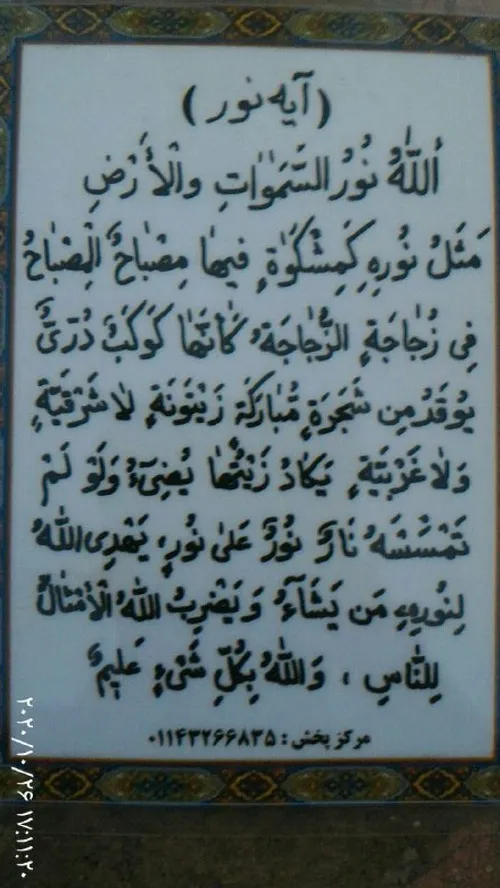 (آیه نور)
أَللّٰهُ نُورُ السَّمٰوٰاتِ وَالْأَرْضِ
مَثَلُ نُورِهِ كَمِشْكَوٰةٍ فِيهٰا مِصْبٰاحٌ الْمِصْبٰاحُ
فِي زُجٰاجَةٍ الزُّجٰاجَةُ كَأَنَّهٰا كَوْكَبٌ دُرِّيٌّ
يُوقَدُ مِن شَجَرَةٍ مُّبٰارَكَةٍ زَيْتُونَةٍ لاٰ شَرْقِيَّةٍ
وَلاٰ غَرْبِيَّةٍ يَكٰادُ زَيْتُهٰا يُضِيٓءُ وَلَوْ لَمْ
تَمْسَسْهُ نٰارٌ نُورٌ عَلىٰ نُورٍ، يَهْدِى اللّٰهُ
لِنُورِهِ مَن يَشَآءُ وَيَضْرِبُ اللّٰهُ الْأَمْثٰالُ
لِلنّٰاسِ ، وَاللّٰهُ بِكُلِّ شَىْءٍ عَلِيمٌ
مرکز پخش : ۰۱۱۴۳۲۶۶۸۳۵
۲۰۲۰/۱۰/۲۶ ۱۷:۱۱:۲۰